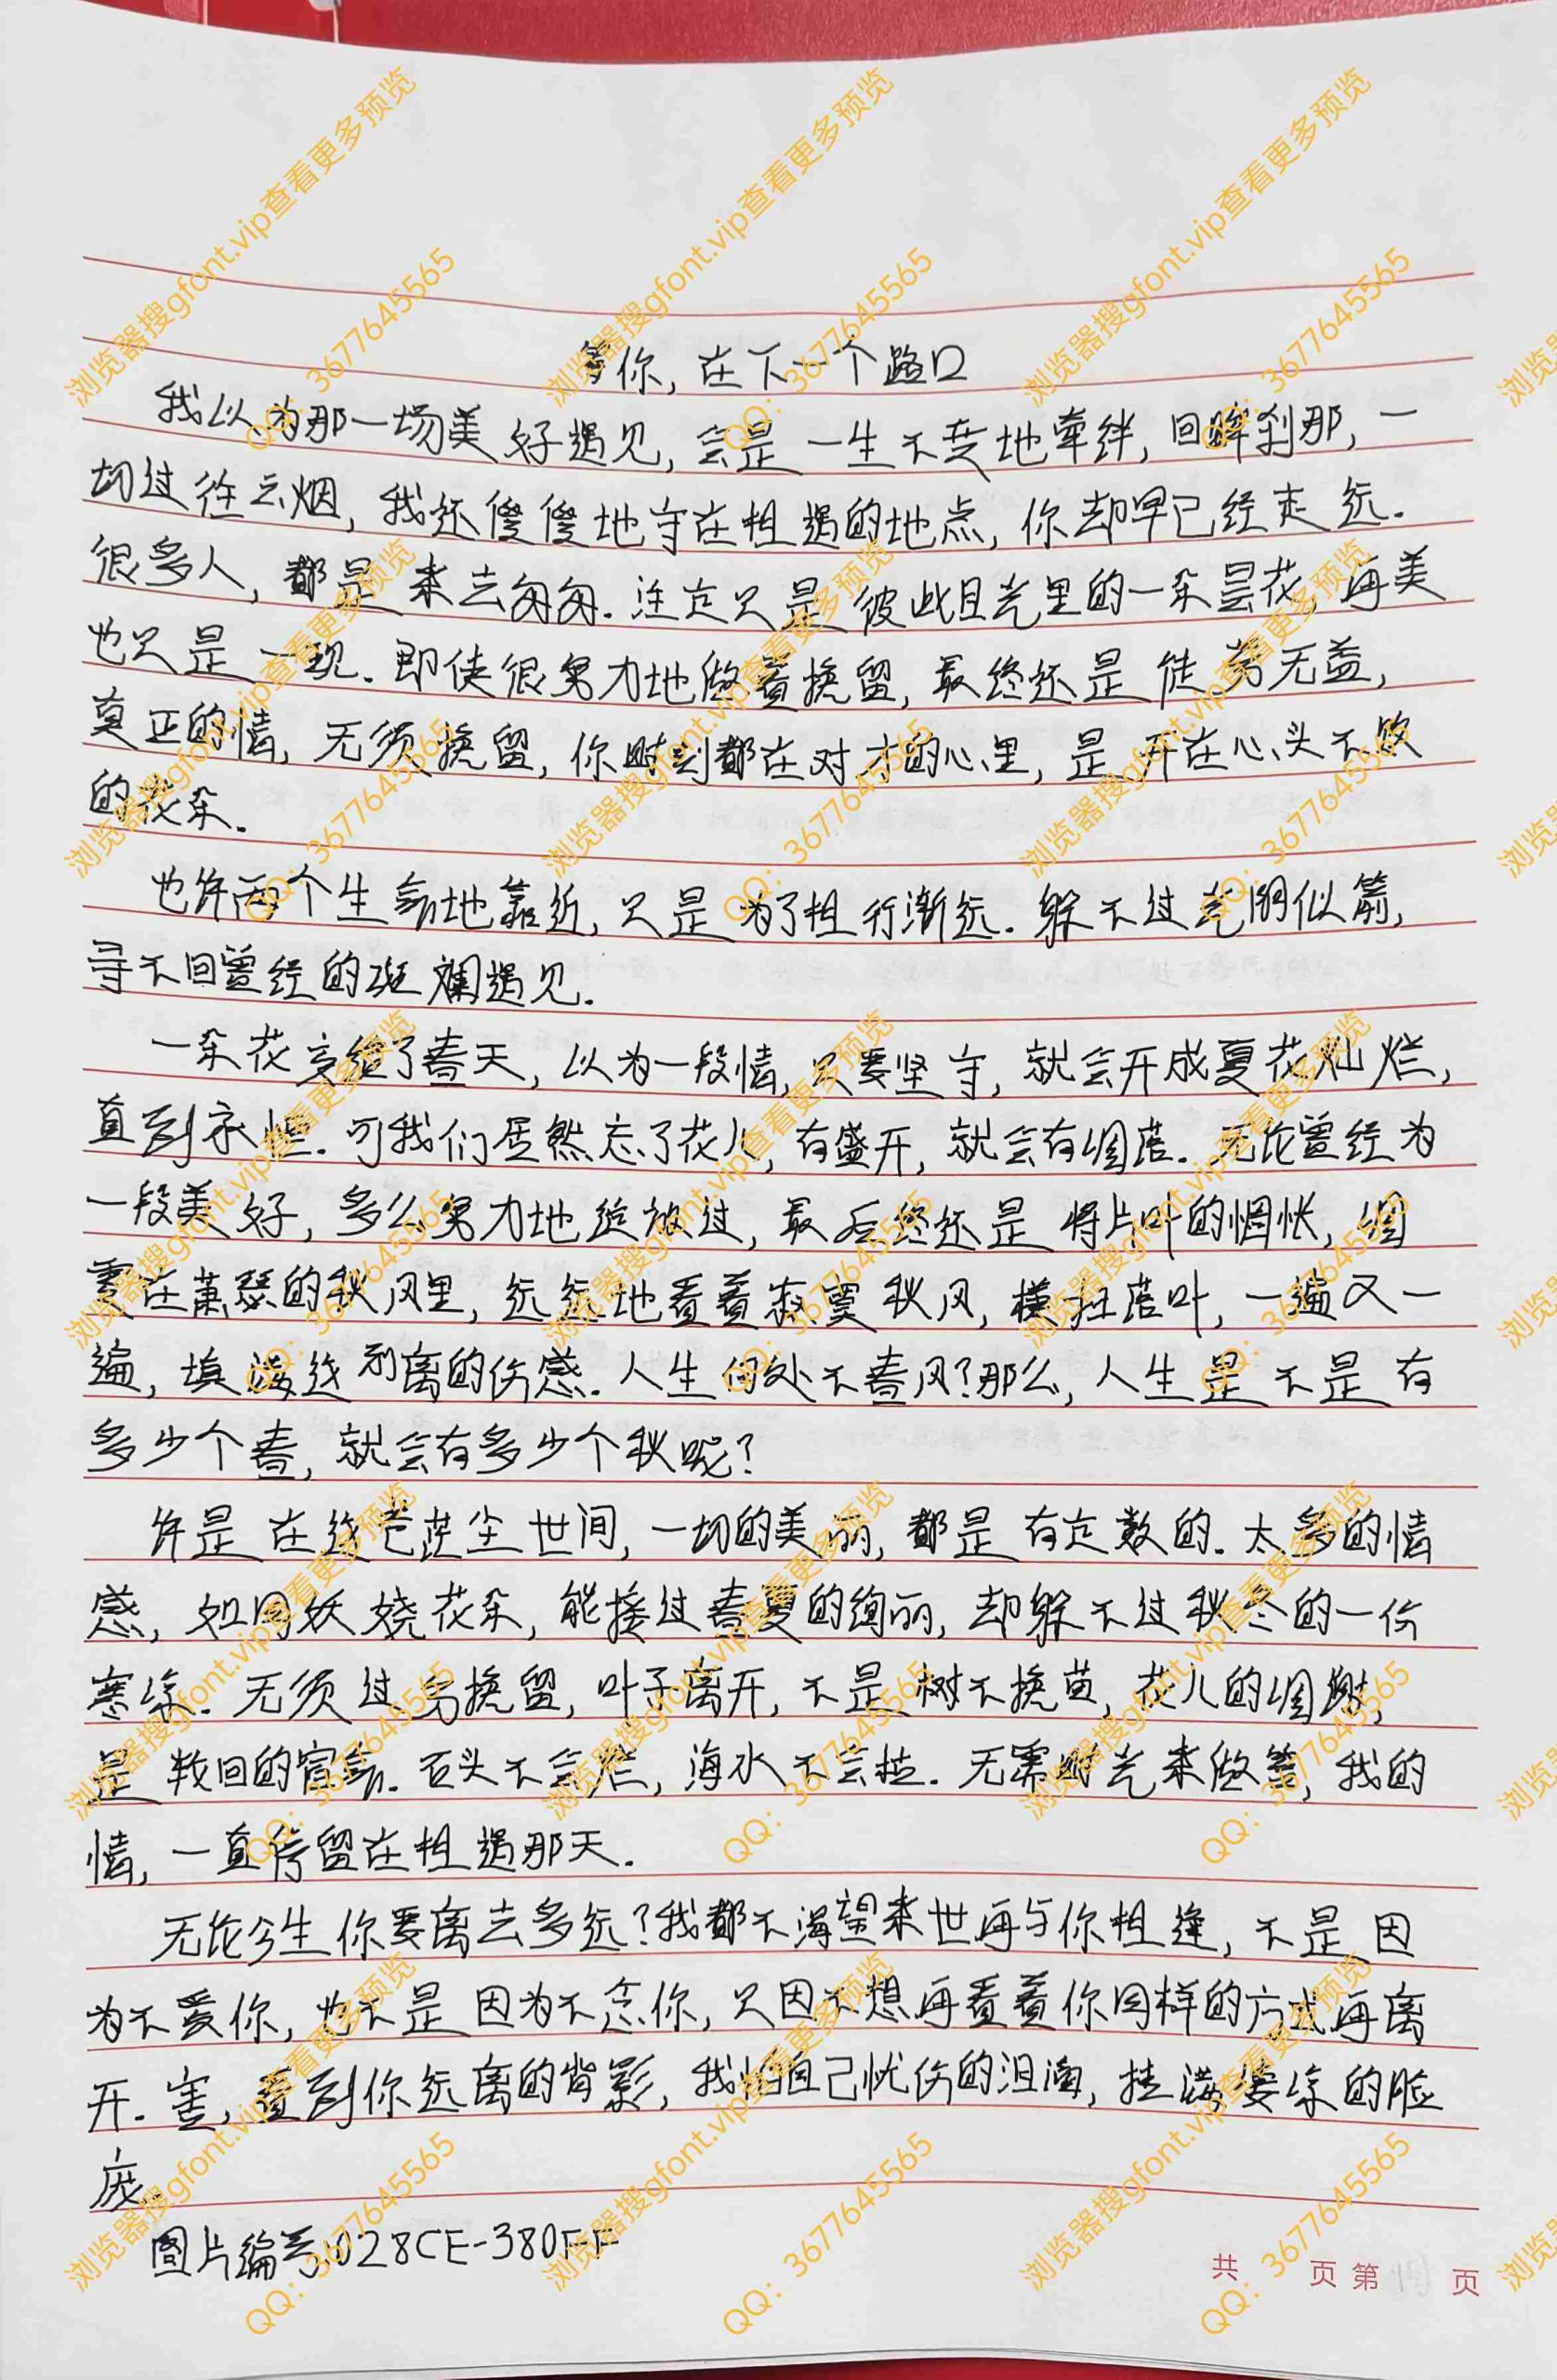 等你，在下一个路口
我以为那一场美好遇见，会是一生不变地牵绊，回眸刹那，一
切过往云烟，我还傻傻地守在相遇的地点，你却早已经走远.
很多人，都是来去匆匆.注定只是彼此目光里的一朵昙花，再美
也只是一现.即使很努力地做着挽留，最终还是徒劳无益，
真正的情，无须挽留，你时刻都在对方的心里，是开在心头不败
的花朵.
也许两个生命地靠近，只是为了相行渐远.躲不过光阴似箭，
寻不回曾经的斑斓遇见.
一朵花交给了春天，以为一段情，只要坚守，就会开成夏花灿烂，
直到永恒.可我们居然忘了花儿，有盛开，就会有凋落.无论曾经为
一段美好，多么努力地绽放过，最后终还是将片叶的惆怅，凋
零在萧瑟的秋风里，远远地看着寂寞秋风，横扫落叶，一遍又一
遍，填满这别离的伤感.人生何处不春风？那么，人生是不是有
多少个春，就会有多少个秋呢？
许是在这苍茫尘世间，一切的美丽，都是有定数的.太多的情
感，如同妖娆花朵，能接过春夏的绚丽，却躲不过秋冬的一份
寒凉.无须过多挽留，叶子离开，不是树不挽留，花儿的凋谢，
是轮回的宿命.石头不会烂，海水不会枯.无需时光来做答，我的
情，一直停留在相遇那天.
无论今生你要离去多远？我都不渴望来世再与你相逢，不是因
为不爱你，也不是因为不念你，只因不想再看着你同样的方式再离
开.害，看到你远离的背影，我怕自己忧伤的泪滴，挂满凄凉的脸
庞.
图片编号:028CE-380FF
共 页 第 页
浏览器搜gfont.vip查看更多预览
QQ：3677645565